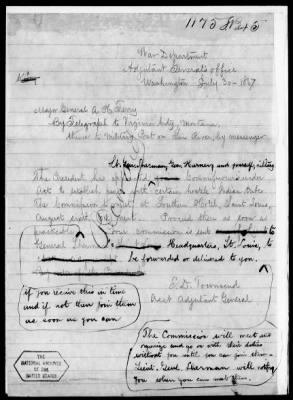 War Department
Adjutant General's Office
Washington July 30 - 1867
Major General A. H. Terry
By Telegraph to Virginia City, Montana,
thence to Military Post on Sun River, by messenger
Lt. Genl Sherman, Genl Harney and yourself, sitting
The President has appointed you Commissioner under
Act to establish peace with certain hostile Indian tribes
The Commission to meet at Southern Hotel Saint Louis,
August sixth. Proceed there as soon as
practicable. Your commission is sent
General Sherman's Headquarters, St. Louis, to
be forwarded or delivered to you.
E. D. Townsend
Asst Adjutant General
if you receive this in time
and if not then join them
as soon as you can
The Commission will meet and
organize and go on with their duties
without you until you can join them -
Lieut. Genl. Sherman will notify
you where you can meet them.
THE
NATIONAL ARCHIVES
OF THE
UNITED STATES